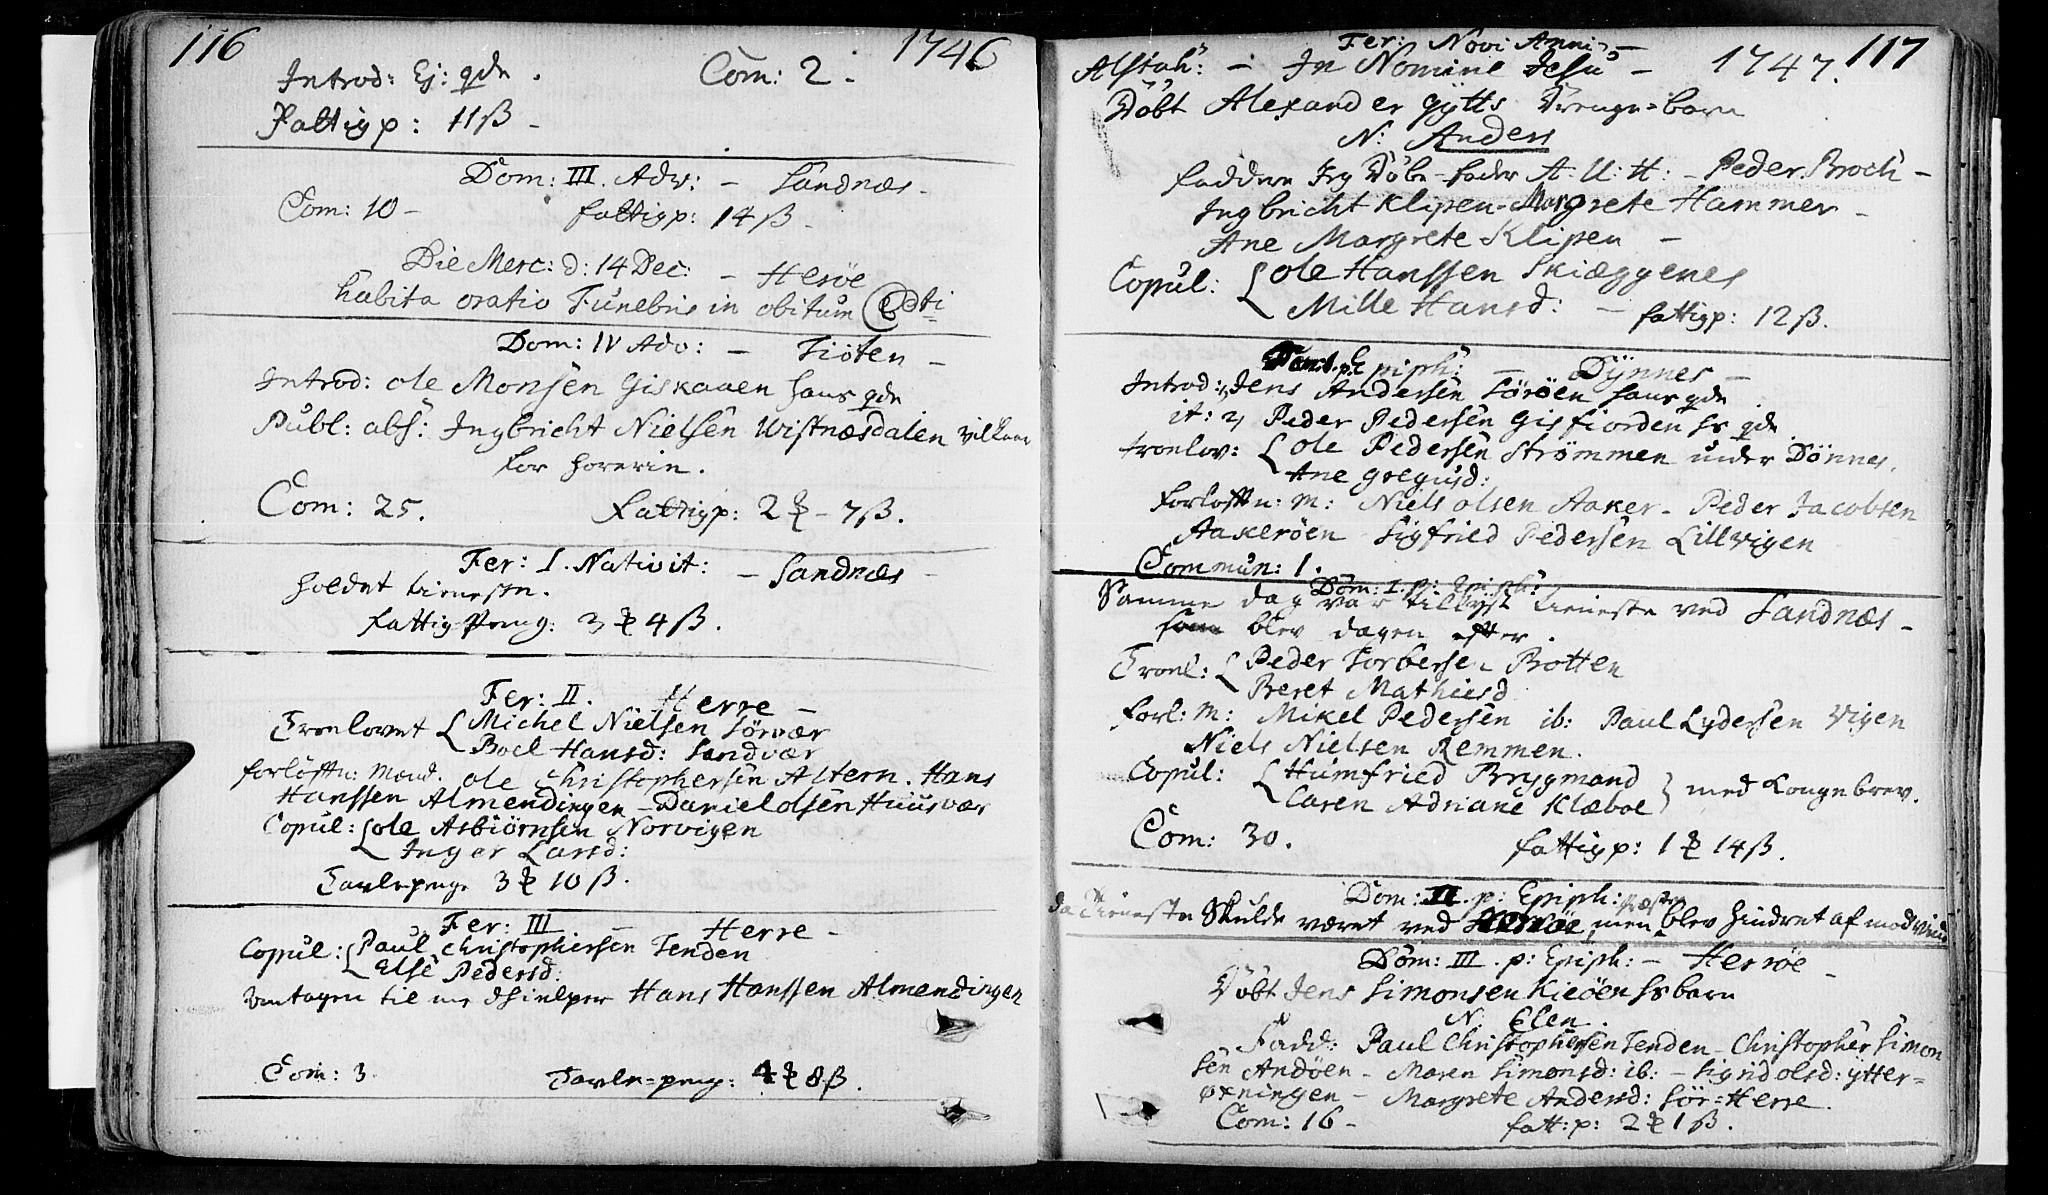 116 1746
Introd: Ej: qde. Com: 2.
Fattigp: 11 ß
Dom: III. Adv: - Sandnæs -
Com: 10 - fattigp: 14 ß.
Die Merc: d: 14 Dec: - Herøe
habita oratio Funebris in obitum
Dom: IV Adv: - Tiøten -
Introd: ole Monsen Giskaaen hans qde
Publ: abs: Ingbricht Nielsen Wistnæsdalen
for horerie.
Com: 25. Fattigp: 2 - 7 ß.
Fer: I. Nativit: - Sandnæs -
holdet tieneste.
fattig-Peng: 3 4 ß.
Fer: II. Herre -
Troelovet Michel Nielsen Sörvær
Boel Hansd: Sandvær
forlöftn: Mænd. ole Christophersen Altern. Hans
Hanssen Almendingen - Daniel olsen Huusvær
Copul: ole Asbiörnsen Norvigen
Inger Larsd:
Tavlepeng. 3 10 ß.
Fer: III - Herre -
Copul: Paul Christophersen Tenden
Else Pedersd:
Antagen til medhielper Hans Hanssen Almendingen
Com: 3. Tavle=peng: 4 8 ß.
Fer: Novi Anni - 117
Alstah: - In Nomine Jesu - 1747.
Döbt Alexander Gÿtts Drenge=barn
N: Anders
faddere Jeg Döbe-fader A: U: H: - Peder Broch -
Ingbricht Klipen - Margrete Hammer -
Ane Margrete Klipen -
Copul: ole Hanssen Skiæggenes
Mille Hansd: - fattigp: 12 ß.
Epiph: - Dÿnnes -
Introd: 1, Jens Andersen Söröen hans qde
it: 2, Peder Pedersen Gisfiorden hs qde
troelov: ole Pedersen Strömmen under Dönnes.
Ane Gregusd:
forlöftn: M: Niels olsen Aaker - Peder Jacobsen
Aakeröen Sigfried Pedersen Lillvigen
Commun: 1.
Dom: I. p: Epiph:
Samme dag var tillyst tieneste ved Sandnæs -
som blev dagen efter.
Troel: Peder Torbersen Botten
Beret Mathiesd
forl: M: Mikel Pedersen ib: Paul Lydersen Vigen
Niels Nielsen Remmen.
Copul: Humfried Brygmand
Caren Adriane Klæboe med Kongebrev.
Com: 30. fattigp: 1 14 ß.
Dom: II. p: Epiph:
da Tieneste Skulde været ved Herröe, men blev hindret af modvind
Dom: III. p: Epiph: - Herröe -
Döbt Jens Simonsen Kieöen hs barn
N. Elen.
Fadd: Paul Christophersen Tenden - Christopher Simon
sen Andöen - Maren Simonsd: ib: - Sigrid olsd: ÿtter=
øxningen - Margrete Andersd: Sör=Herre.
Com: 16 - fatt:p: 2 1 ß.